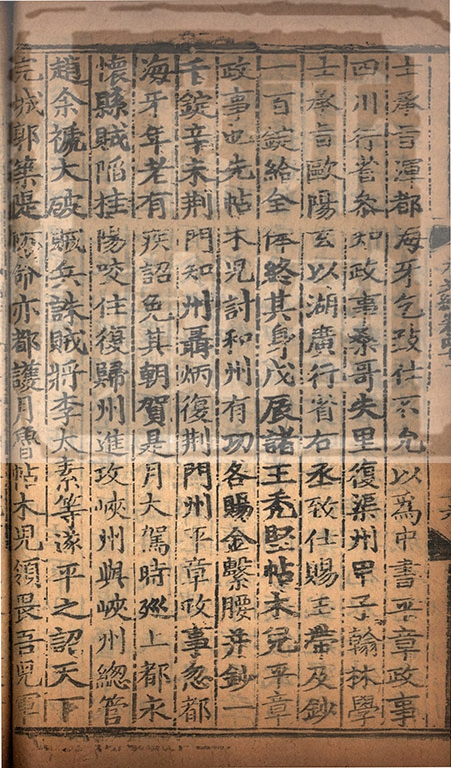 士承旨渾都海牙乞致仕不允以為中書平章政事
四川行省參知政事桑哥失里復渠州甲子翰林學
士承旨歐陽玄以湖廣行省右丞致仕賜玉帶及鈔
一百錠給全俸終其身戊辰諸王禿堅帖木兒平章
政事也先帖木兒討和州有功各賜金繫腰并鈔一
千錠辛未荆門知州聶炳復荆門州平章政事忽都
海牙年老有疾詔免其朝賀是月大駕時巡上都永
懷縣賊陷桂陽咬住復歸州進攻峽州與峽州總管
趙余禠大破賊兵誅賊將李太素等遂平之詔天下
完城郭築隄防命亦都護月魯帖木兒領畏吾兒軍